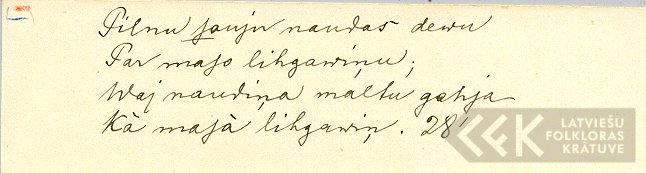 Pilnu sauju naudas dewu
Par maso lihgawiņu;
Waj naudiņa maltu gahja
Kà masà lihgawiņ. 28'
LATVIEŠU
FOLKLORAS
KRĀTUVE